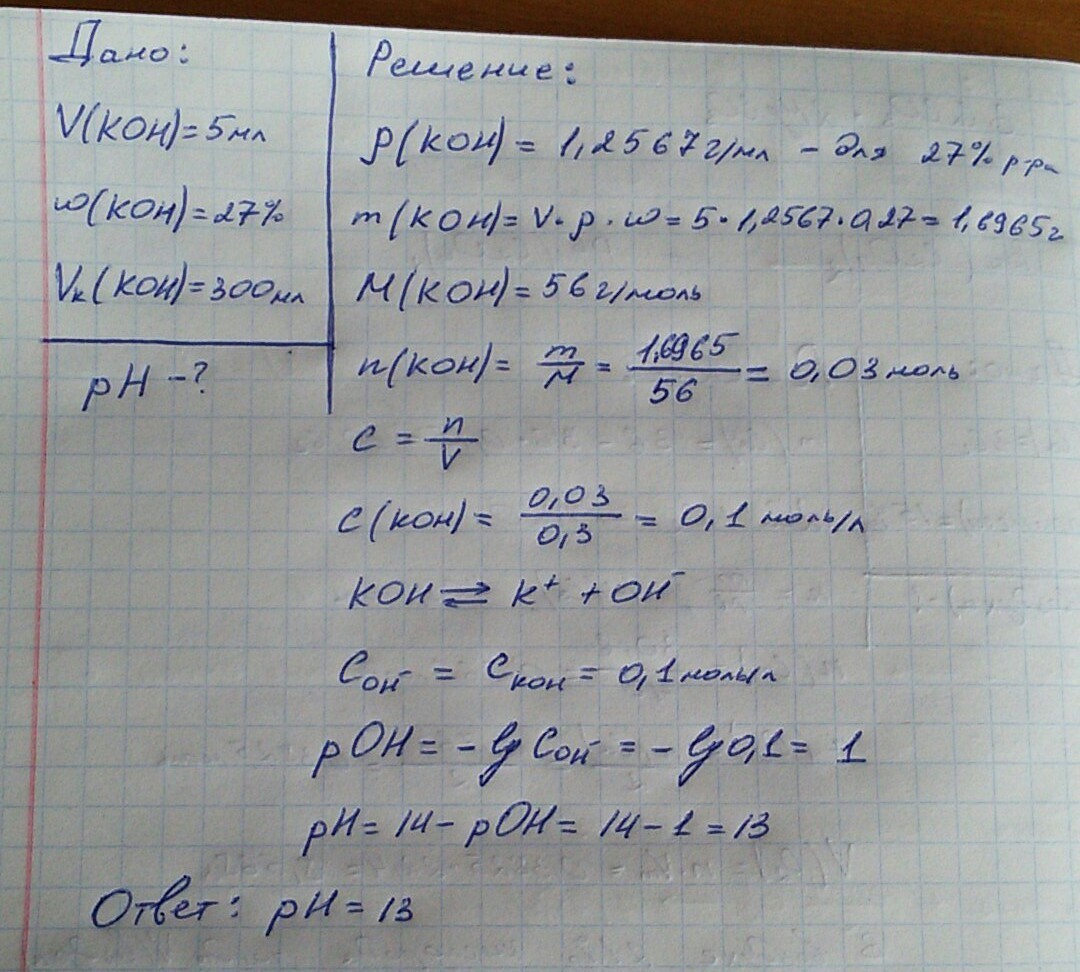 Дано:
V(KOH)=5мл
ω(KOH)=27%
Vк(KOH)=300мл
pH-?
Решение:
ρ(KOH) = 1,2567 г/мл - для 27% р-ра
m(KOH) = V·ρ·ω = 5·1,2567·0,27 = 1,6965г
M(KOH) = 56 г/моль
n(KOH) = m/M = 1,6965/56 = 0,03 моль
C = n/V
C(KOH) = 0,03/0,3 = 0,1 моль/л
KOH ⇄ K⁺ + OH⁻
C OH⁻ = C KOH = 0,1 моль/л
pOH = -lg C OH⁻ = -lg 0,1 = 1
pH = 14 - pOH = 14 - 1 = 13
Ответ: pH = 13